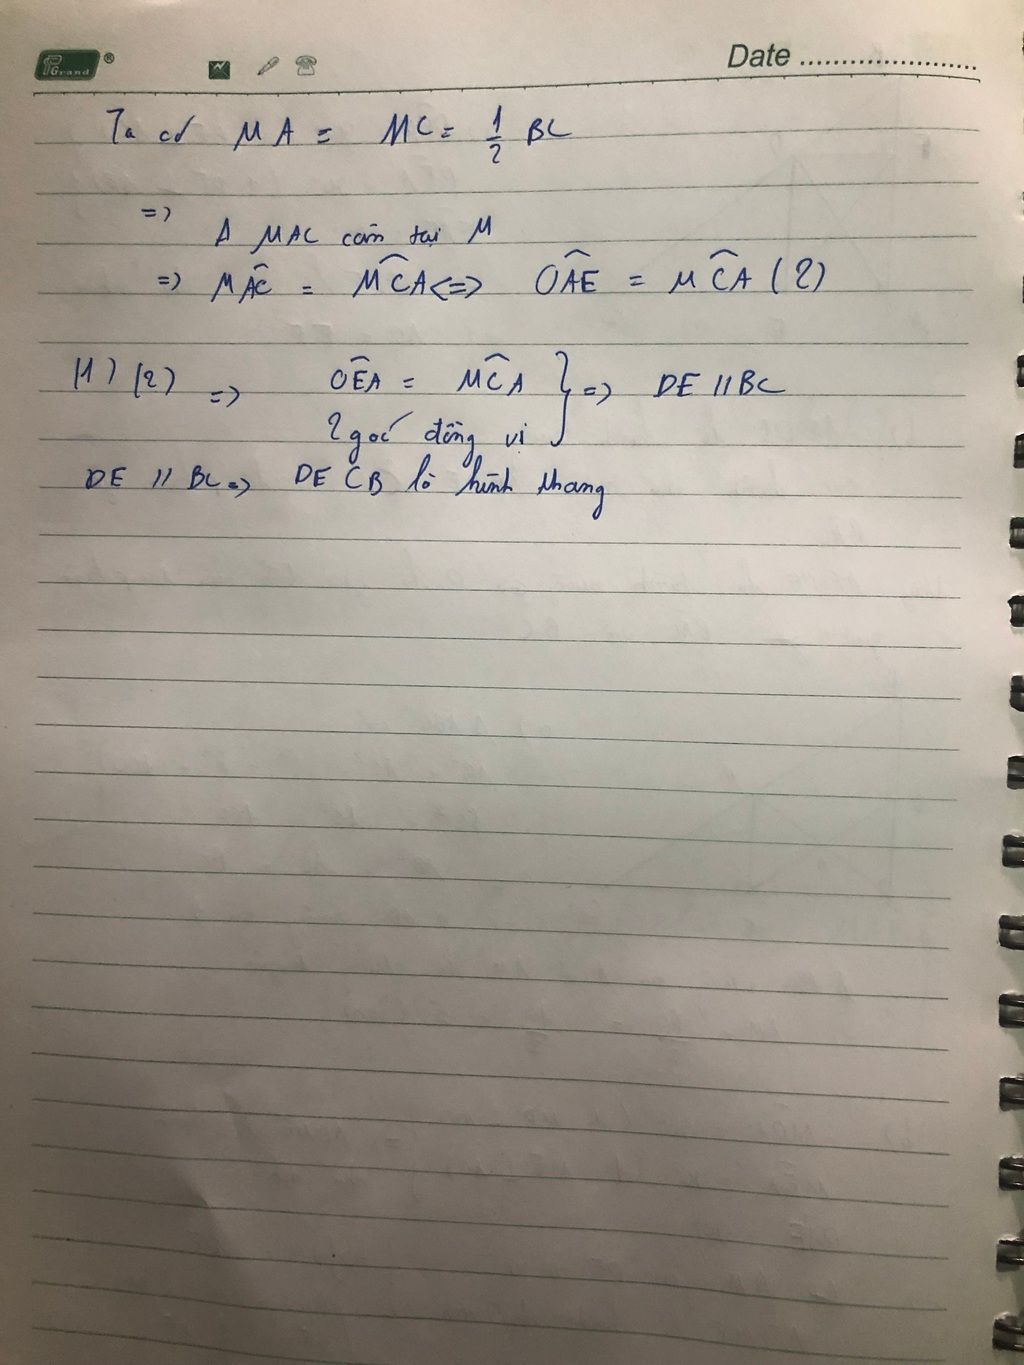 Grand ®
Date ......................
Ta có MA = MC = 1/2 BC
=>
Δ MAC cân tại M
=> MAĈ = MĈA <=> OÂE = MĈA (2)
(1) (2) => OÊA = MĈA } => DE // BC
2 góc đồng vị
DE // BC => DE CB là hình thang